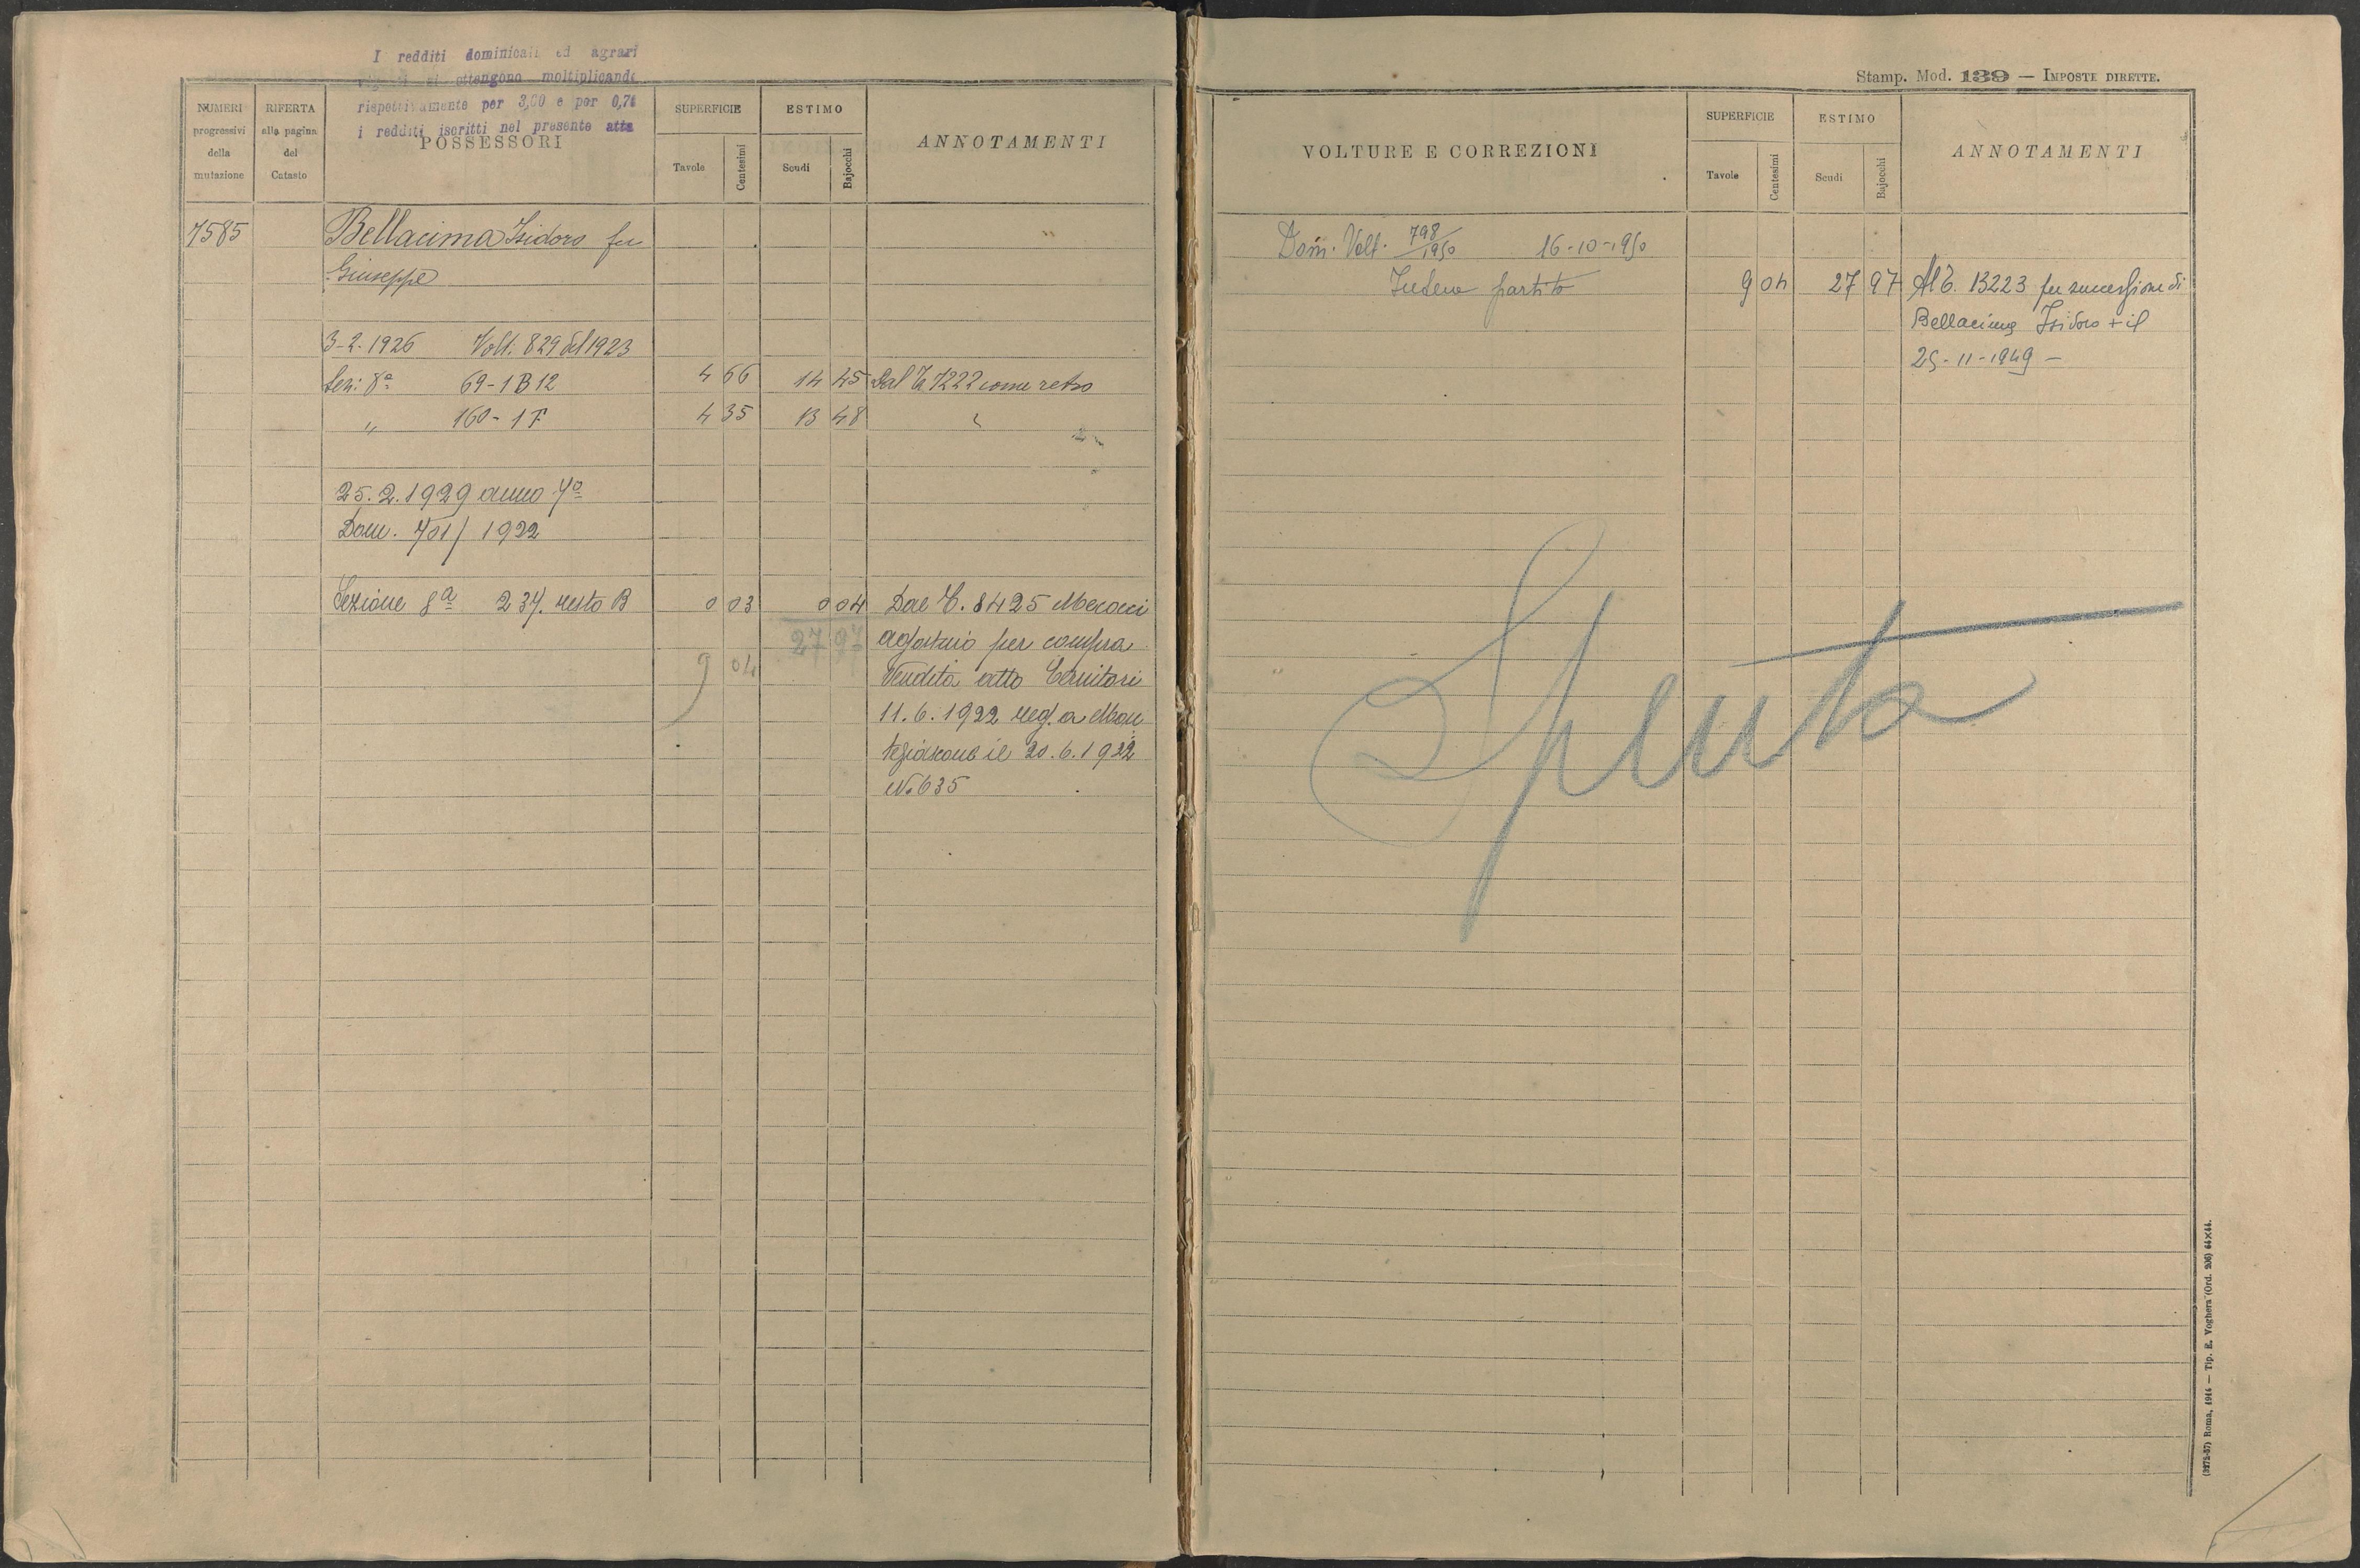 I redditi dominicali ed agrari
si ottengono moltiplicando
rispettivamente per 3,00 e per 0,7
i redditi iscritti nel presente atto
NUMERI progressivi della mutazione
RIFERTA alla pagina del Catasto
POSSESSORI
SUPERFICIE
Tavole
Centesimi
ESTIMO
Scudi
Bajocchi
ANNOTAMENTI
7585
Bellacima Isidoro fu
Giuseppe
3-2-1926 Volt: 829 del 1923
Sez: 8ª 69-1B12 4 66 14 45 Dal T. 7222 come retro
„ 160-1F 4 35 13 48 "
25.2.1929 anno 7º
Dom. 701/1922
Sezione 8ª 237. resto B 0 03 0 04 Dal T. 8425 Mecocci
27 97 per compra
9 04 Vendita atto
11.6.1922 reg. a Mon
tefiascone il 20.6.1922
N. 635
Stamp. Mod. 139 — IMPOSTE DIRETTE.
VOLTURE E CORREZIONI
SUPERFICIE
Tavole
Centesimi
ESTIMO
Scudi
Bajocchi
ANNOTAMENTI
Dom. Volt. 798/1950 16-10-1950
Intera partita 9 04 27 97 Al T. 13223 per successione di
Bellacima Isidoro + il
25-11-1949 —
Spenta
(3275-57) Roma, 1914 — Tip. E. Voghera (Ord. 206) 64×44.